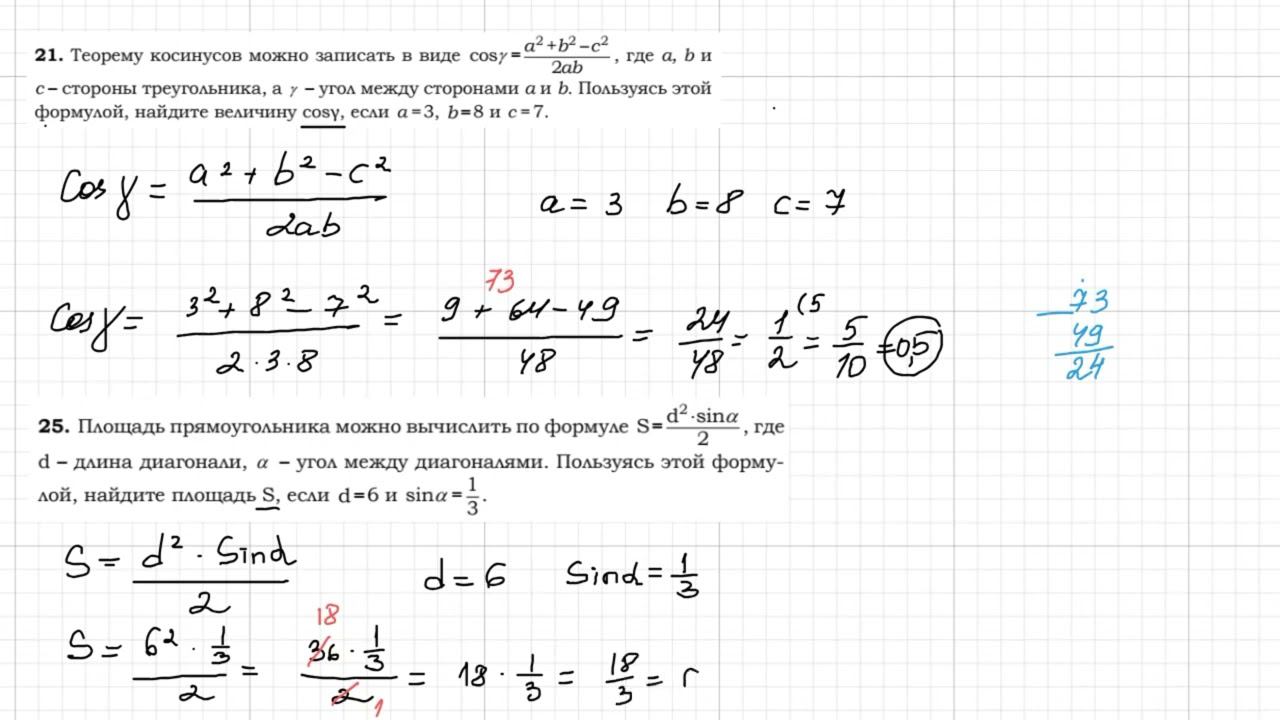 21. Теорему косинусов можно записать в виде cosγ = (a²+b²−c²)/(2ab), где a, b и
c – стороны треугольника, а γ – угол между сторонами a и b. Пользуясь этой
формулой, найдите величину cosγ, если a=3, b=8 и c=7.
Cos γ = (a² + b² − c²)/(2ab)
a = 3 b = 8 c = 7
73
Cos γ = (3² + 8² − 7²)/(2·3·8) = (9 + 64 − 49)/48 = 24/48 = 1/2 (5 = 5/10 = 0,5
73
49
24
25. Площадь прямоугольника можно вычислить по формуле S = (d²·sinα)/2, где
d – длина диагонали, α – угол между диагоналями. Пользуясь этой форму-
лой, найдите площадь S, если d=6 и sinα = 1/3.
S = (d² · Sinα)/2
d = 6 Sinα = 1/3
18
S = (6² · 1/3)/2 = (36 · 1/3)/2 = 18 · 1/3 = 18/3 =
1